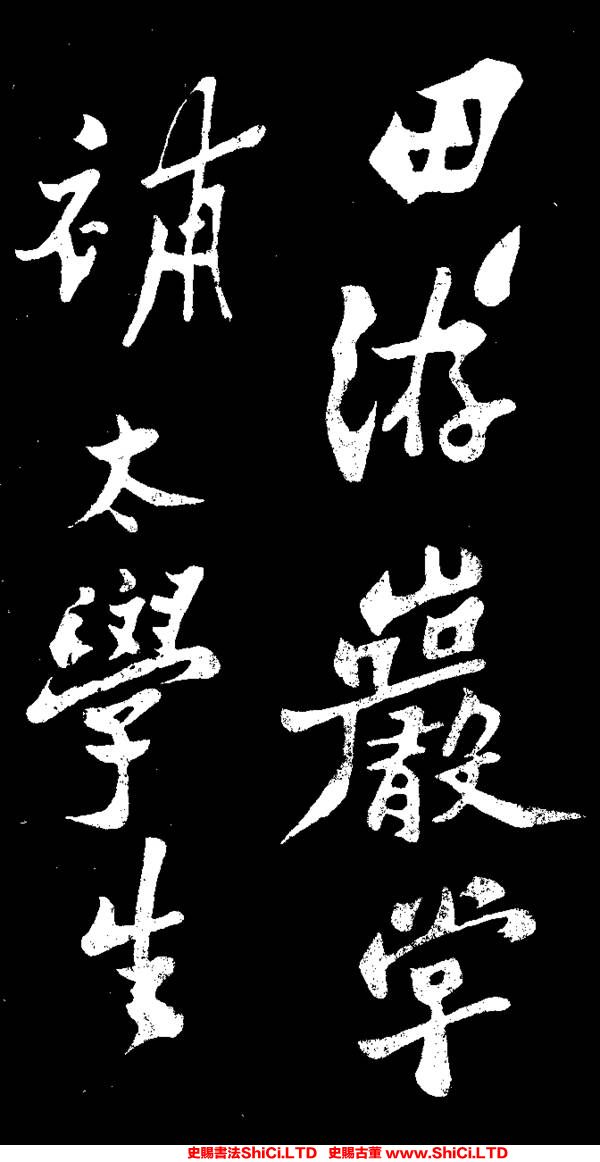 田游巖
補太學生
史賜書法ShiCi.LTD 史賜古董 www.ShiCi.LTD